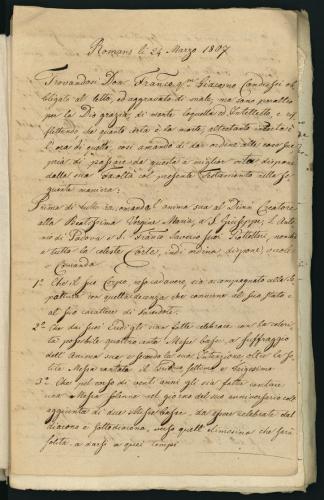 Romans li 24 Marzo 1807
Trovandosi Don Franco qm Giacomo Candussi ob
bligato al letto, ed aggravato di male, ma sano peraltro
per la Dio grazia, di mente loquella ed Intelletto, e ri
flettendo che quanto certa è la morte, altrettanto incerta è
l'ora di quella, così amando di dar ordine alle cose sue
pria di passare da questa a miglior vita dispone
delle sue facoltà col presente Testamento nella se
guente maniera:
Prima di tutto raccomanda l'anima sua al Divin Creatore
alla Beatissima Vergine Maria, a S. Giuseppe, S. Anto
nio di Padova, e S. Franco Saverio suoi Protettori, nonché
a tutta la celeste Corte, indi ordina, dispone, e vuole
Comanda
1mo Che il suo Corpo reso cadavere, sia accompagnato alla se
poltura con quella decenza che conviene al suo stato e
al suo carattere di Sacerdote.
2do Che dai suoi Eredi gli sian fatte celebrare con la celeri
tà possibile quattrocento Messe basse, a suffraggio
dell'Anima sua e secondo la sua Intenzione, oltre la so
lita Messa cantata il settimo e trigesimo
3o Che nel corso di venti anni gli sia fatta cantare
una Messa solenne nel giorno del suo anniversario coll'
aggiunta di due Messe basse, da esser celebrate dal
diacono e sottodiacono, verso quell'elemosina che sarà
solita a darsi a quei tempi